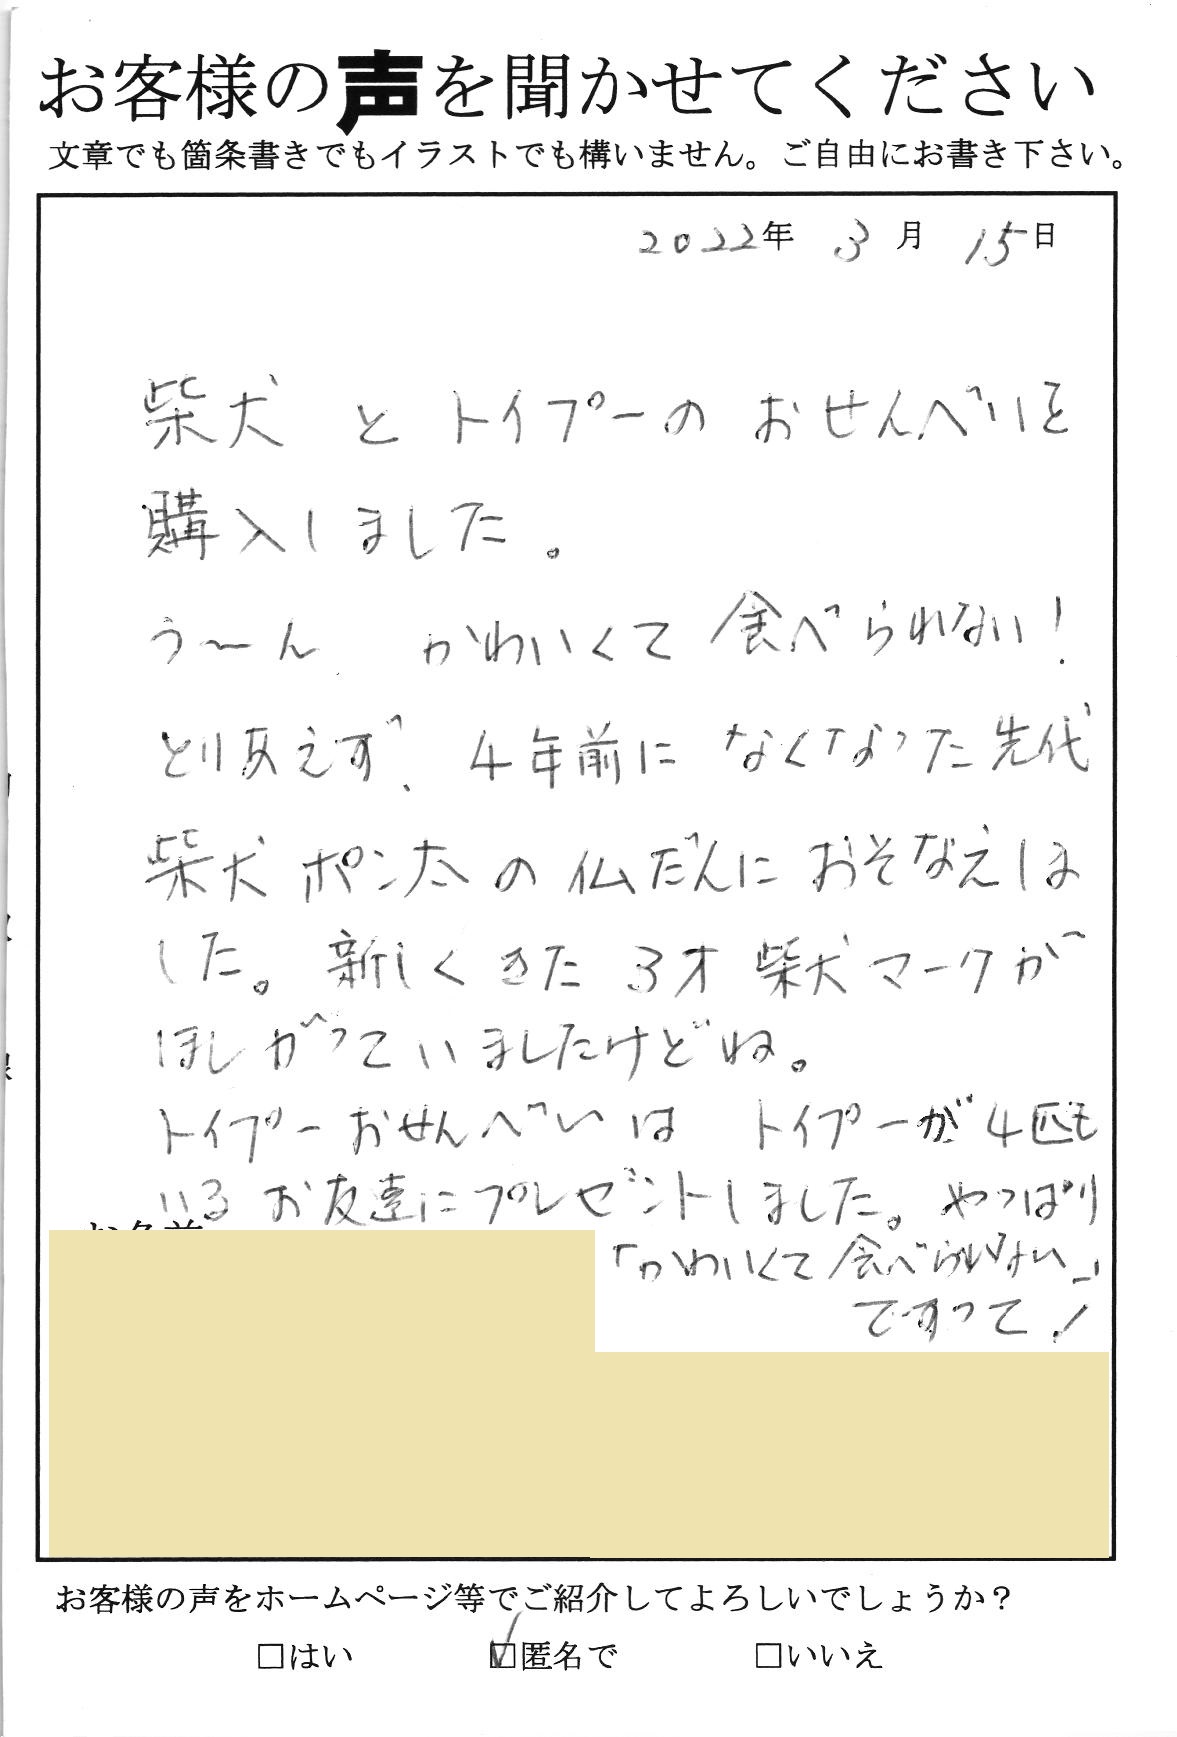 お客様の声を聞かせてください
文章でも箇条書きでもイラストでも構いません。ご自由にお書き下さい。
2022年 3月 15日
柴犬とトイプーのおせんべいを
購入しました。
う〜ん、かわいくて食べられない!
とりあえず、4年前になくなった先代
柴犬ポン太の仏だんにおそなえしま
した。新しくきた3才柴犬マークが
ほしがっていましたけどね。
トイプーおせんべいは トイプーが4匹も
いるお友達にプレゼントしました。やっぱり
「かわいくて食べられない」
ですって!
お客様の声をホームページ等でご紹介してよろしいでしょうか?
□はい ☑匿名で □いいえ